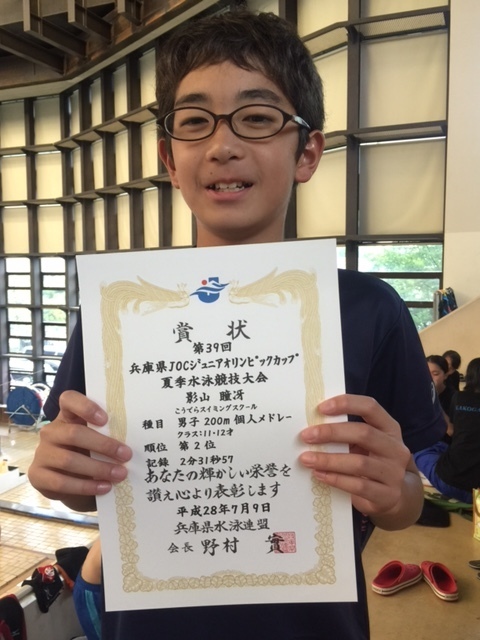 賞状
第39回
兵庫県JOCジュニアオリンピックカップ
夏季水泳競技大会
影山 瞳冴
こうでらスイミングスクール
種目 男子 200m 個人メドレー
クラス:11・12才
順位 第2位
記録 2分31秒57
あなたの輝かしい栄誉を
讃え心より表彰します
平成28年7月9日
兵庫県水泳連盟
会長 野村